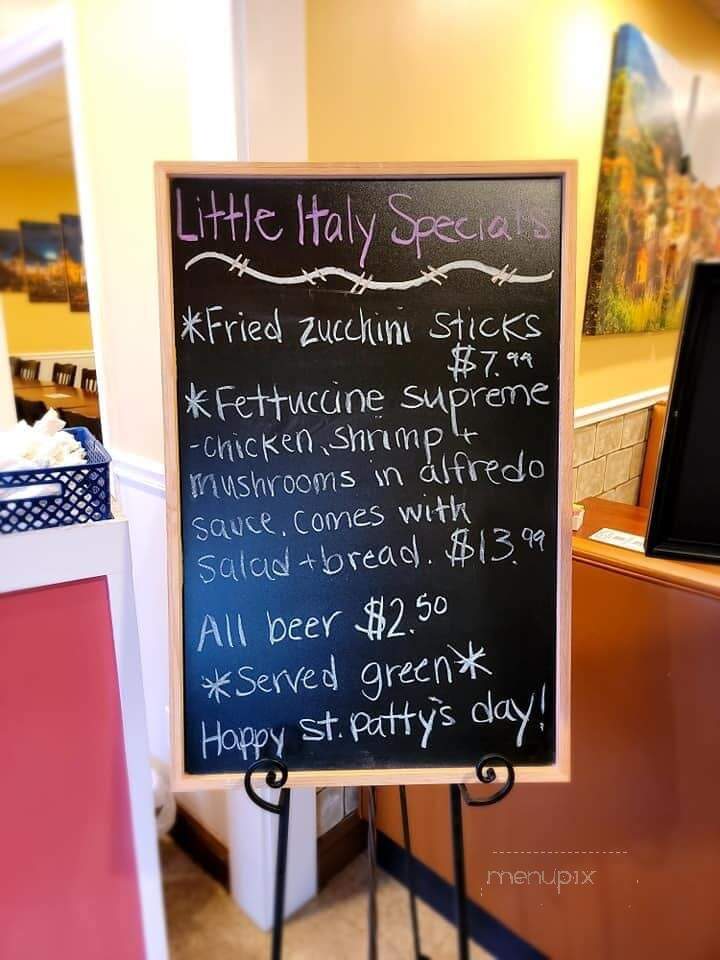 Little Italy Specials
*Fried zucchini sticks
$7.99
*Fettuccine supreme
-chicken, shrimp +
mushrooms in alfredo
sauce. Comes with
salad + bread. $13.99
All beer $2.50
*Served green*
Happy St. Patty's day!
menupix